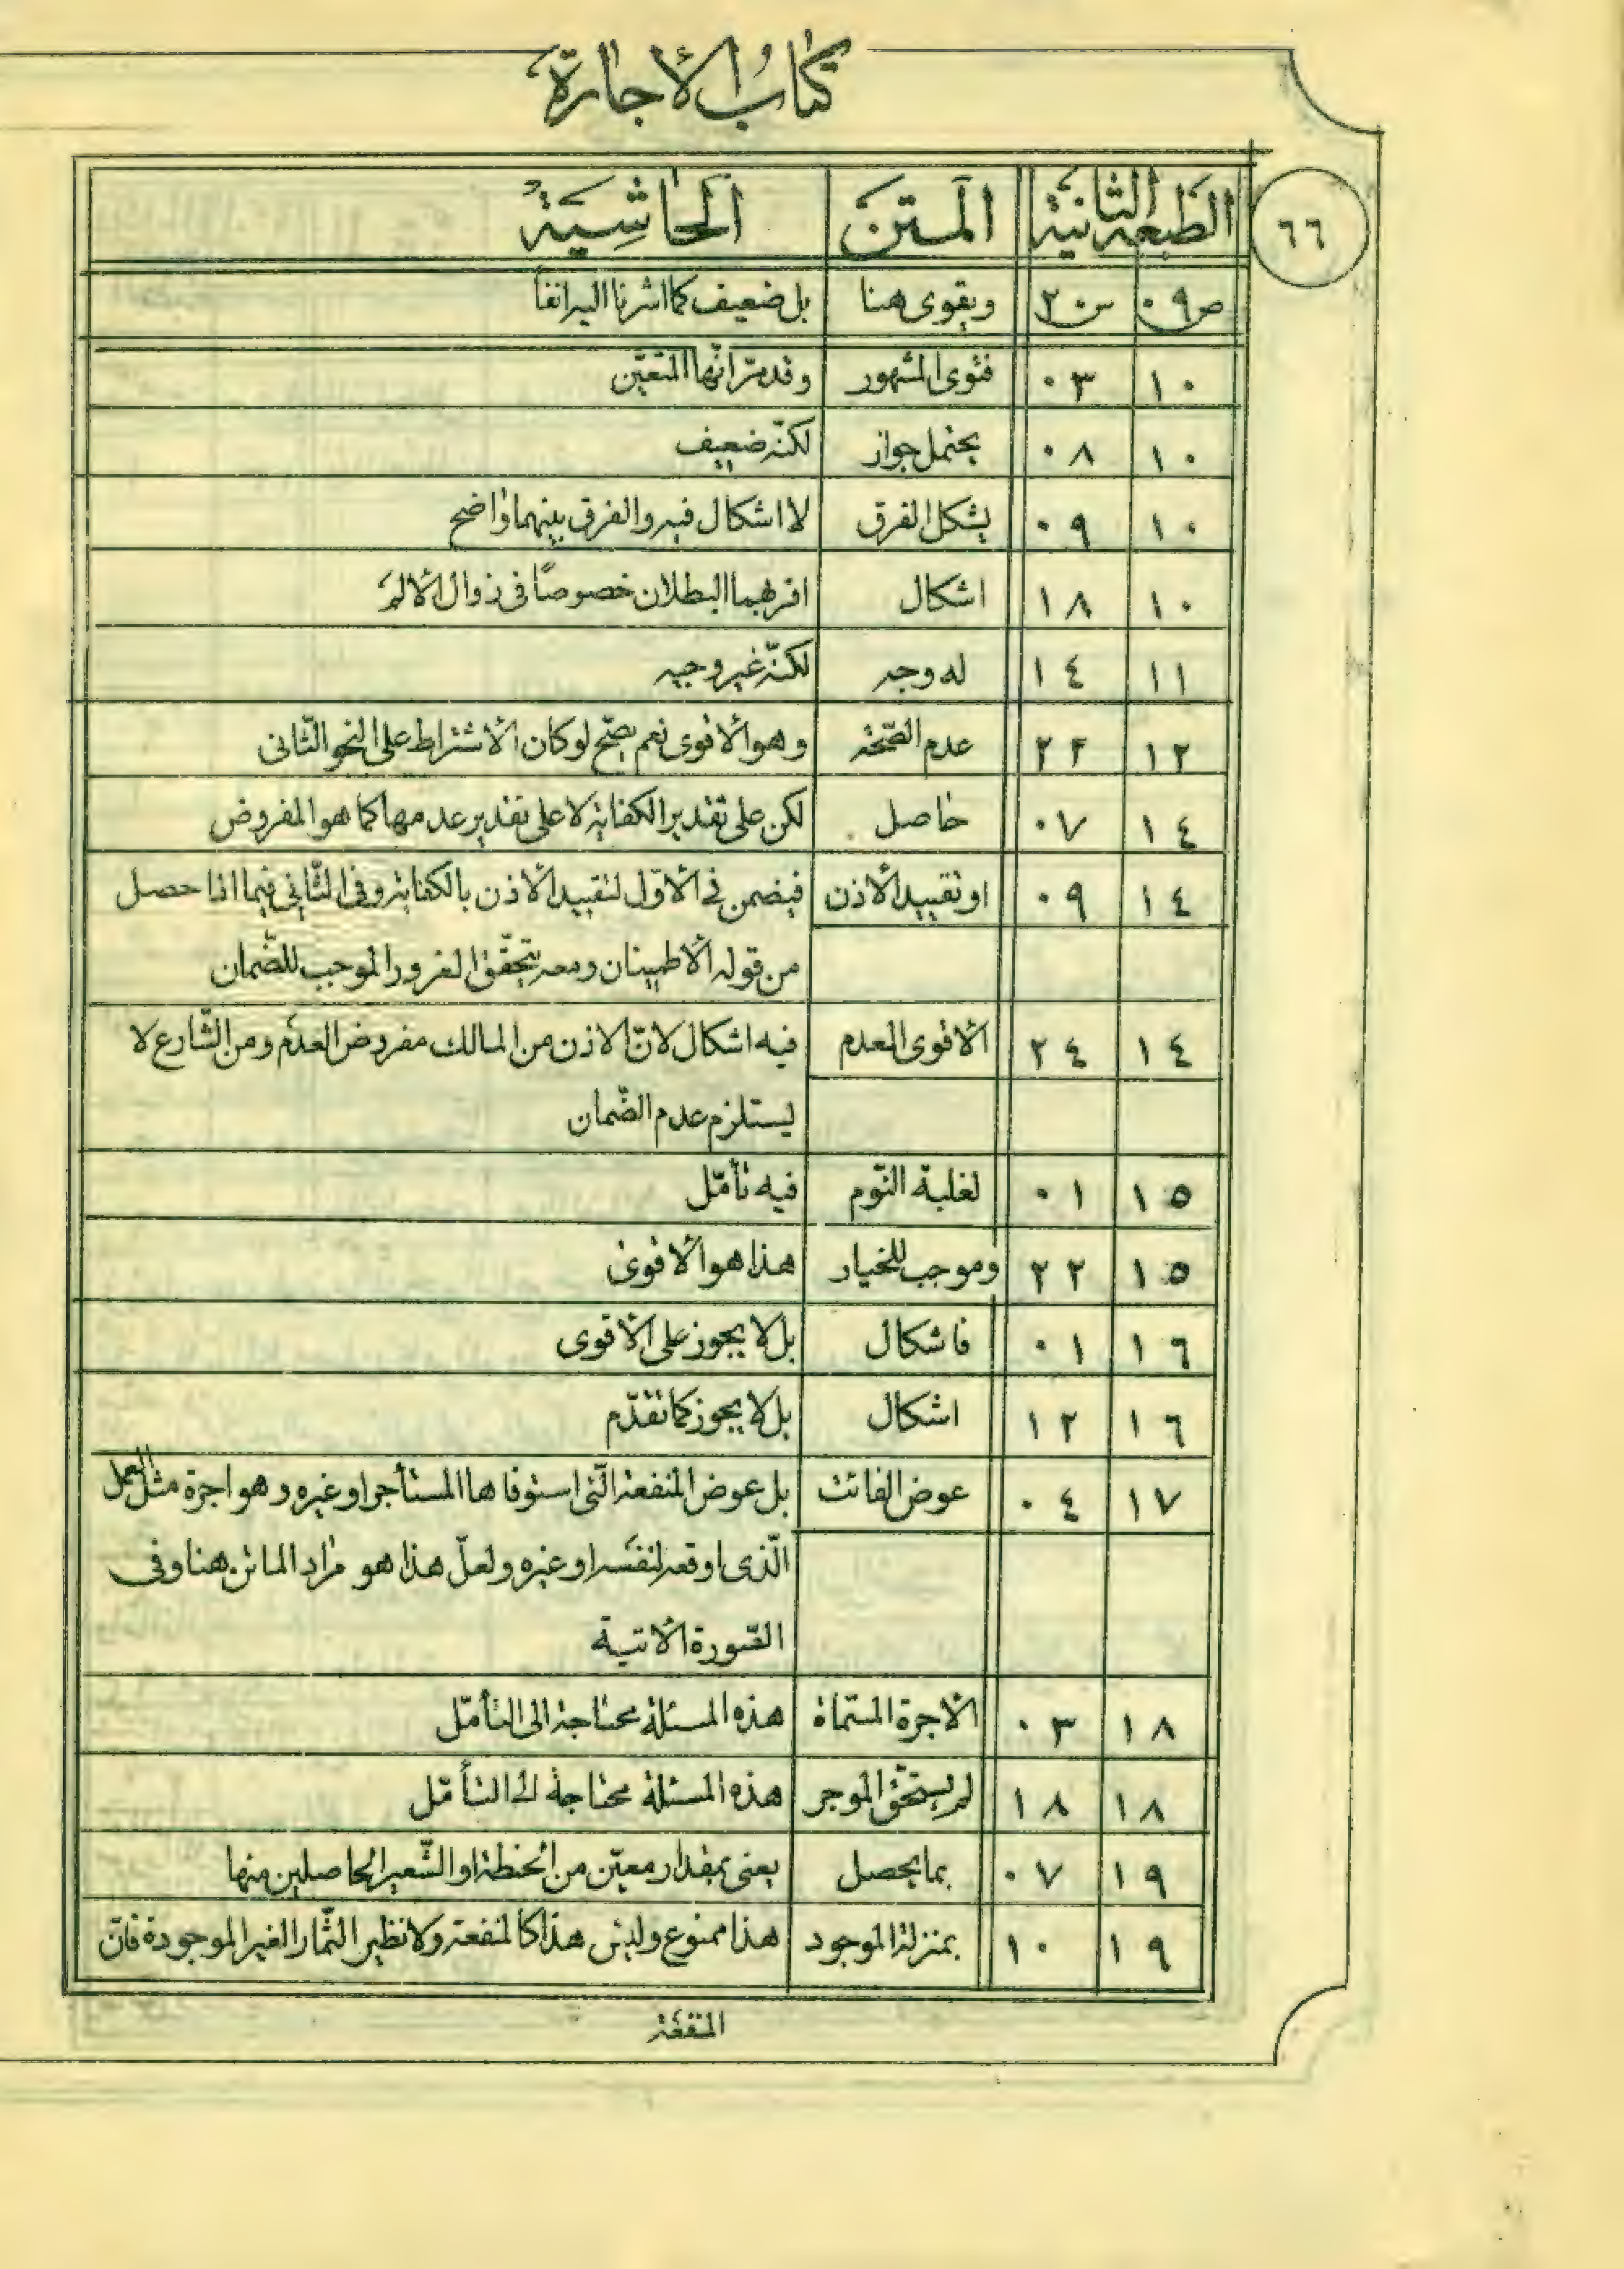 كتاب الأجارة
٦٦
الطبعة الثانية المتن الحاشية
ص٠٩ س٢٠ ويقوى هنا بل ضعيف كما اشرنا اليه انفاً
١٠ ٠٣ فتوى المشهور وقد مرّ انّها المتعيّن
١٠ ٠٨ يحتمل جواز لكنّه ضعيف
١٠ ٠٩ يشكل الفرق لا اشكال فيه والفرق بينهما واضح
١٠ ١٨ اشكال اقربهما البطلان خصوصًا فى زوال الألم
١١ ١٤ له وجه لكنّه غير وجيه
١٢ ٢٢ عدم الصّحّة وهو الأقوى نعم يصّح لو كان الأشتراط على النحو الثّانى
١٤ ٠٧ حاصل لكن على تقدير الكفاية لا على تقدير عدمها كما هو المفروض
١٤ ٠٩ او تقييد الأذن فيضمن في الأوّل لتقييد الأذن بالكفاية وفى الثّاني فيما اذا حصل
من قوله الأطمينان ومعه يتحقّق الغرور الموجب للضّمان
١٤ ٢٤ الأقوى العدم فيه اشكال لانّ الاذن من المالك مفروض العدم ومن الشّارع لا
يستلزم عدم الضّمان
١٥ ٠١ لغلبة النّوم فيه تأمّل
١٥ ٢٢ وموجب للخيار هذا هو الأقوى
١٦ ٠١ فاشكال بل لا يجوز على الأقوى
١٦ ١٢ اشكال بل لا يجوز كما تقدّم
١٧ ٠٤ عوض الفائت بل عوض المنفعة الّتى استوفاها المستأجر او غيره وهو اجرة مثل العمل
الّذى اوقعه لنفسه او غيره ولعلّ هذا هو مراد الماتن هنا وفى
الصّورة الأتية
١٨ ٠٣ الأجرة المسّماة هذه المسئلة محتاجة الى التأمّل
١٨ ١٨ لم يستحقّ الموجر هذه المسئلة محتاجة الى التأمّل
١٩ ٠٧ بما يحصل يعنى بمقدار معيّن من الحنطة او الشّعير الحاصلين منها
١٩ ١٠ بمنزلة الموجود هذا ممنوع وليس هذا كالمنفعة ولا نظير الثّمار الغير الموجودة فانّ
المنفعة